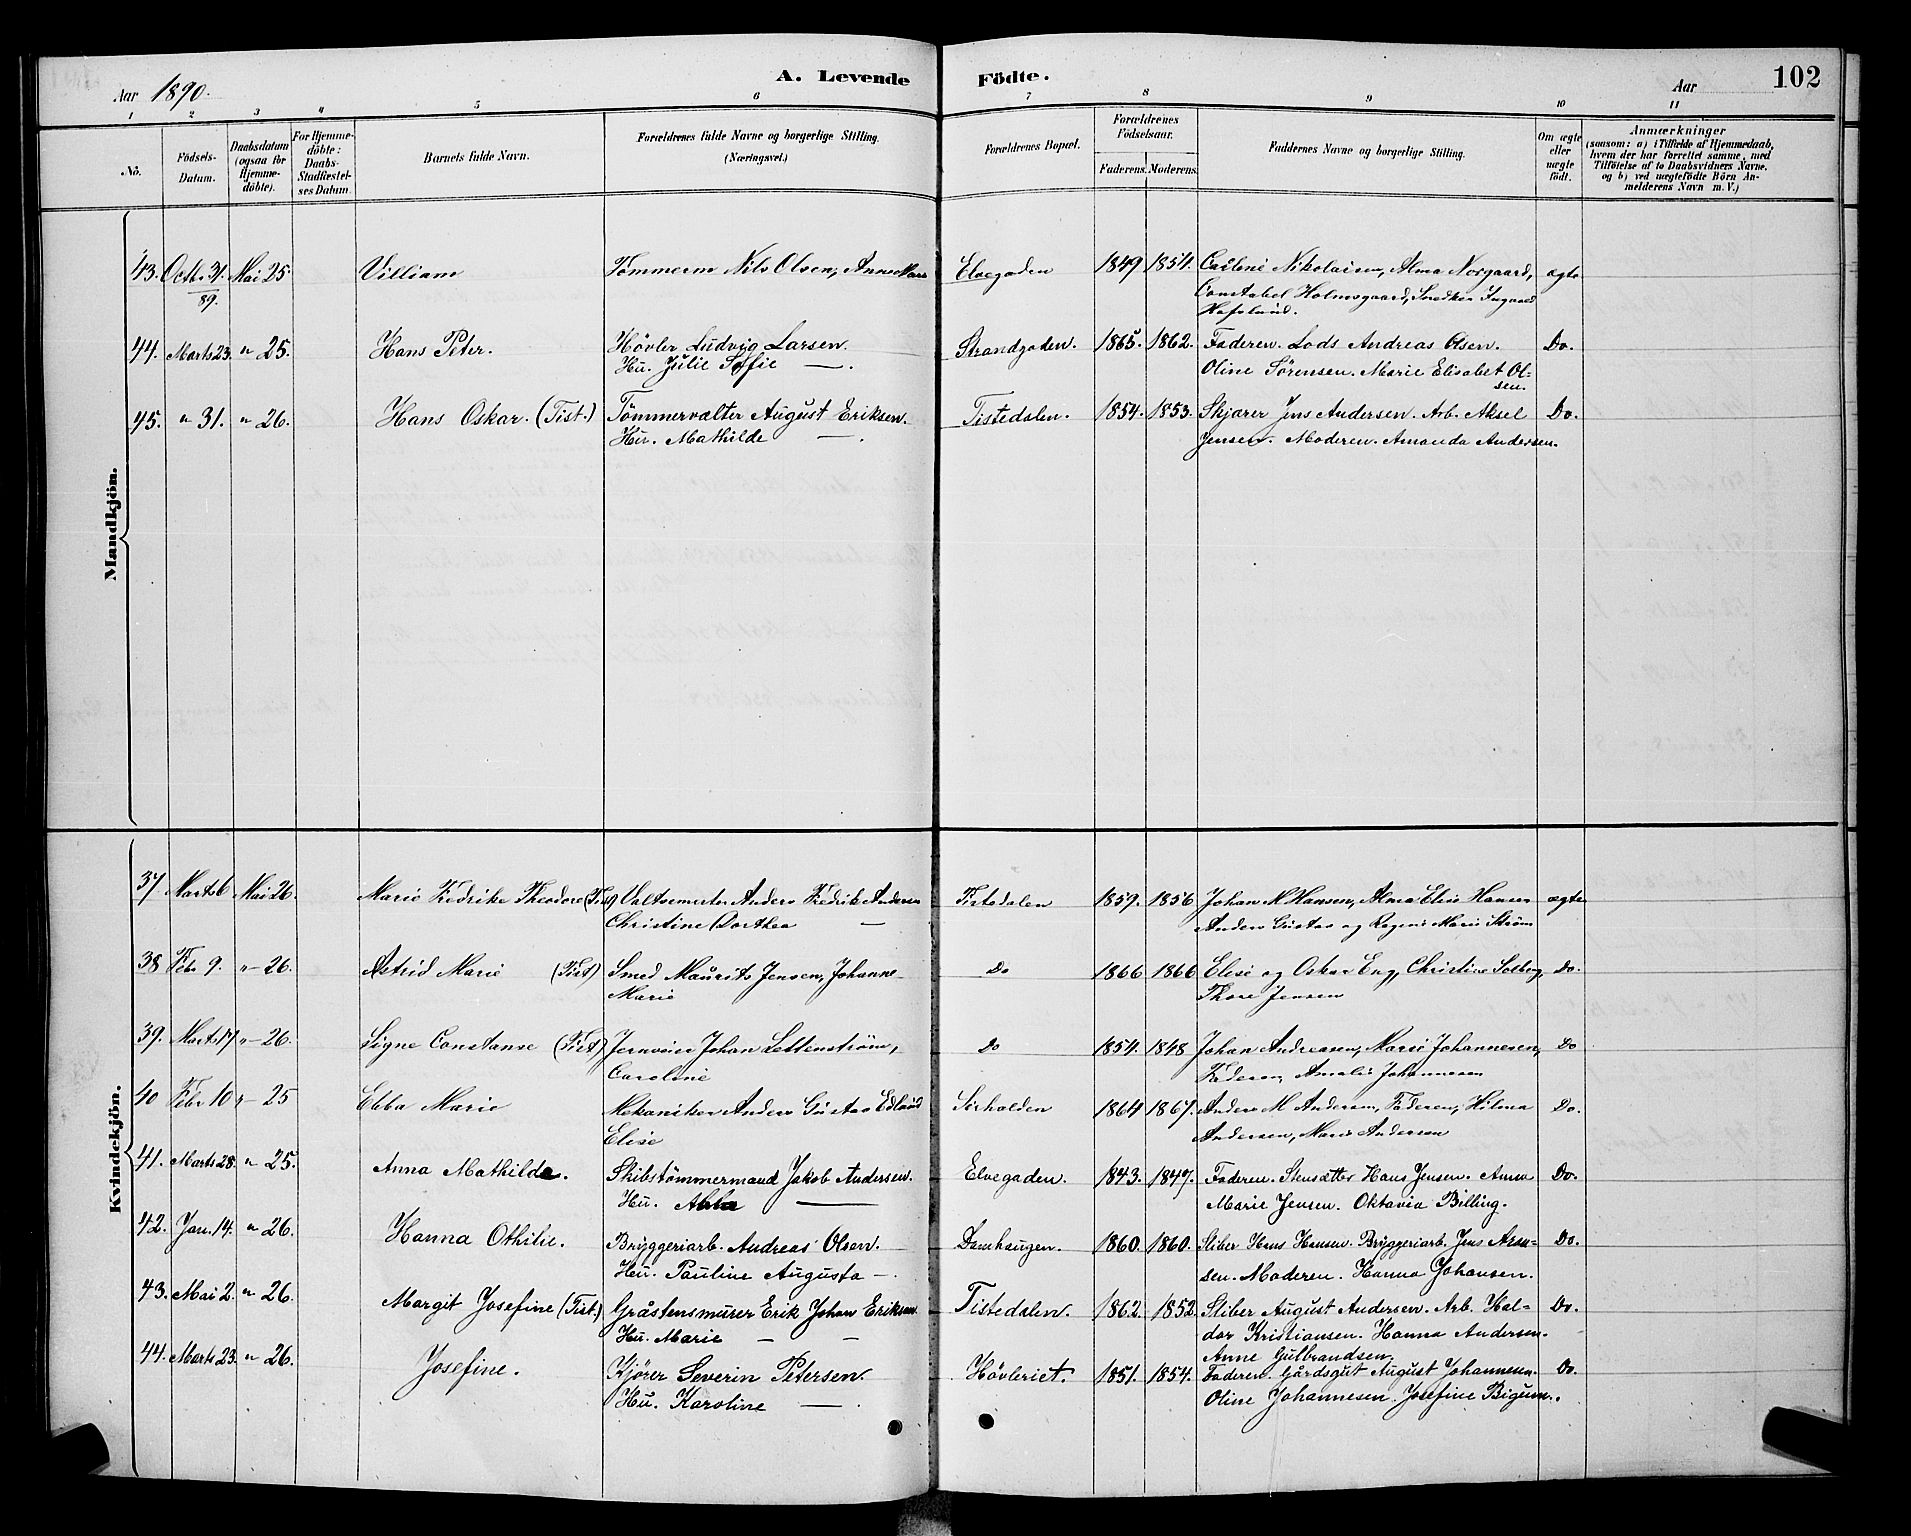 Aar 1890.
A. Levende Födte.
Aar
102
1 2 3 4 5 6 7 8 9 10 11
No.
Födsels-Datum.
Daabsdatum (ogsaa for Hjemmedöbte).
For Hjemmedöbte: Daabs-Stadfæstelses Datum.
Barnets fulde Navn.
Forældrenes fulde Navne og borgerlige Stilling. (Næringsvei.)
Forældrenes Bopæl.
Forældrenes Födselsaar.
Faderens. Moderens.
Faddernes Navne og borgerlige Stilling.
Om ægte eller uægte födt.
Anmærkninger
(saasom: a) i Tilfælde af Hjemmedaab, hvem der har forrettet samme, med Tilföielse af to Daabsvidners Navne, og b) ved uægtefödte Börn Anmelderens Navn m. V.)
Mandkjön.
43. Octb. 31. Mai 25 Villiam Tömmerm Nils Olsen, Anne Elvegaden 1849 1854. Nikolaisen, Alma Norgaard, ægte
89. Constabel Holmsgaard, Snedker
Hafslund.
44. Marts 23. " 25. Hans Peter. Hövler Ludvig Larsen. Strandgaden. 1865. 1862. Faderen. Lods Andreas Olsen. Do.
Hu. Julie Sofie —. Oline Sørensen. Marie Elisabet Ol-
sen.
45. " 31. " 26. Hans Oskar. (Tist.) Tömmervælter August Eriksen. Tistedalen. 1854. 1853. Skjærer Jens Andersen. Arb. Aksel Do.
Hu. Mathilde —. Jensen. Moderen. Amanda Andersen.
Kvindekjön.
37 Marts 6 Mai 26. Marie Fredrike Theodore (Tist) Anders Fredrik Andersen Tistedalen 1859. 1856 Johan M Hansen, Alma Elise Hansen ægte
Christine Dorthea — Anders Gustav og Marie Strøm
38 Febr 9. "- 26. Astrid Marie (Tist) Smed Maurits Jensen, Johanne Do 1866 1866 Elise og Oskar Eng, Christine Solberg, Do.
Marie Thore Jensen
39. Marts 17 "- 26. Signe Constanse (Tist) Johan Lettenstrøm, Do 1854. 1848 Johan Andreasen, Marie Johannesen, Do
Caroline Faderen, Amalie Johannesen
40 Febr 10 "- 25 Ebba Marie Mekaniker Anders Gustav Edlund 1864 1867. Anders M Andersen, Faderen, Hilma Do.
Elise Andersen, Marie Andersen
41. Marts 28. " 25. Anna Mathilde. Skibstömmermand Jakob Andersen. Elvegaden. 1843. 1847. Faderen. Stensætter Hans Jensen. Anna Do.
Hu. — Marie Jensen. Oktavia Billing.
42. Jan. 14. " 26. Hanna Othilie. Bryggeriarb. Andreas Olsen. Damhaugen. 1860. 1860. Sliber Hans Hansen. Bryggeriarb. Jens Do.
Hu. Pauline Augusta —. sen. Moderen. Hanna Johansen.
43. Mai 2. " 26. Margit Josefine (Tist.) Gråstensmurer Erik Johan Eriksen. Tistedalen. 1862. 1852. Sliber August Andersen. Arb. Hal- Do.
Hu. Marie — — dor Kristiansen. Hanna Andersen.
Anne Gulbrandsen.
44. Marts 23. " 26. Josefine. Kjører Severin Petersen. Hövleriet. 1851. 1854. Faderen. Gårdsgut August Johannesen. Do.
Hu. Karoline —. Oline Johannesen. Josefine Bigum.